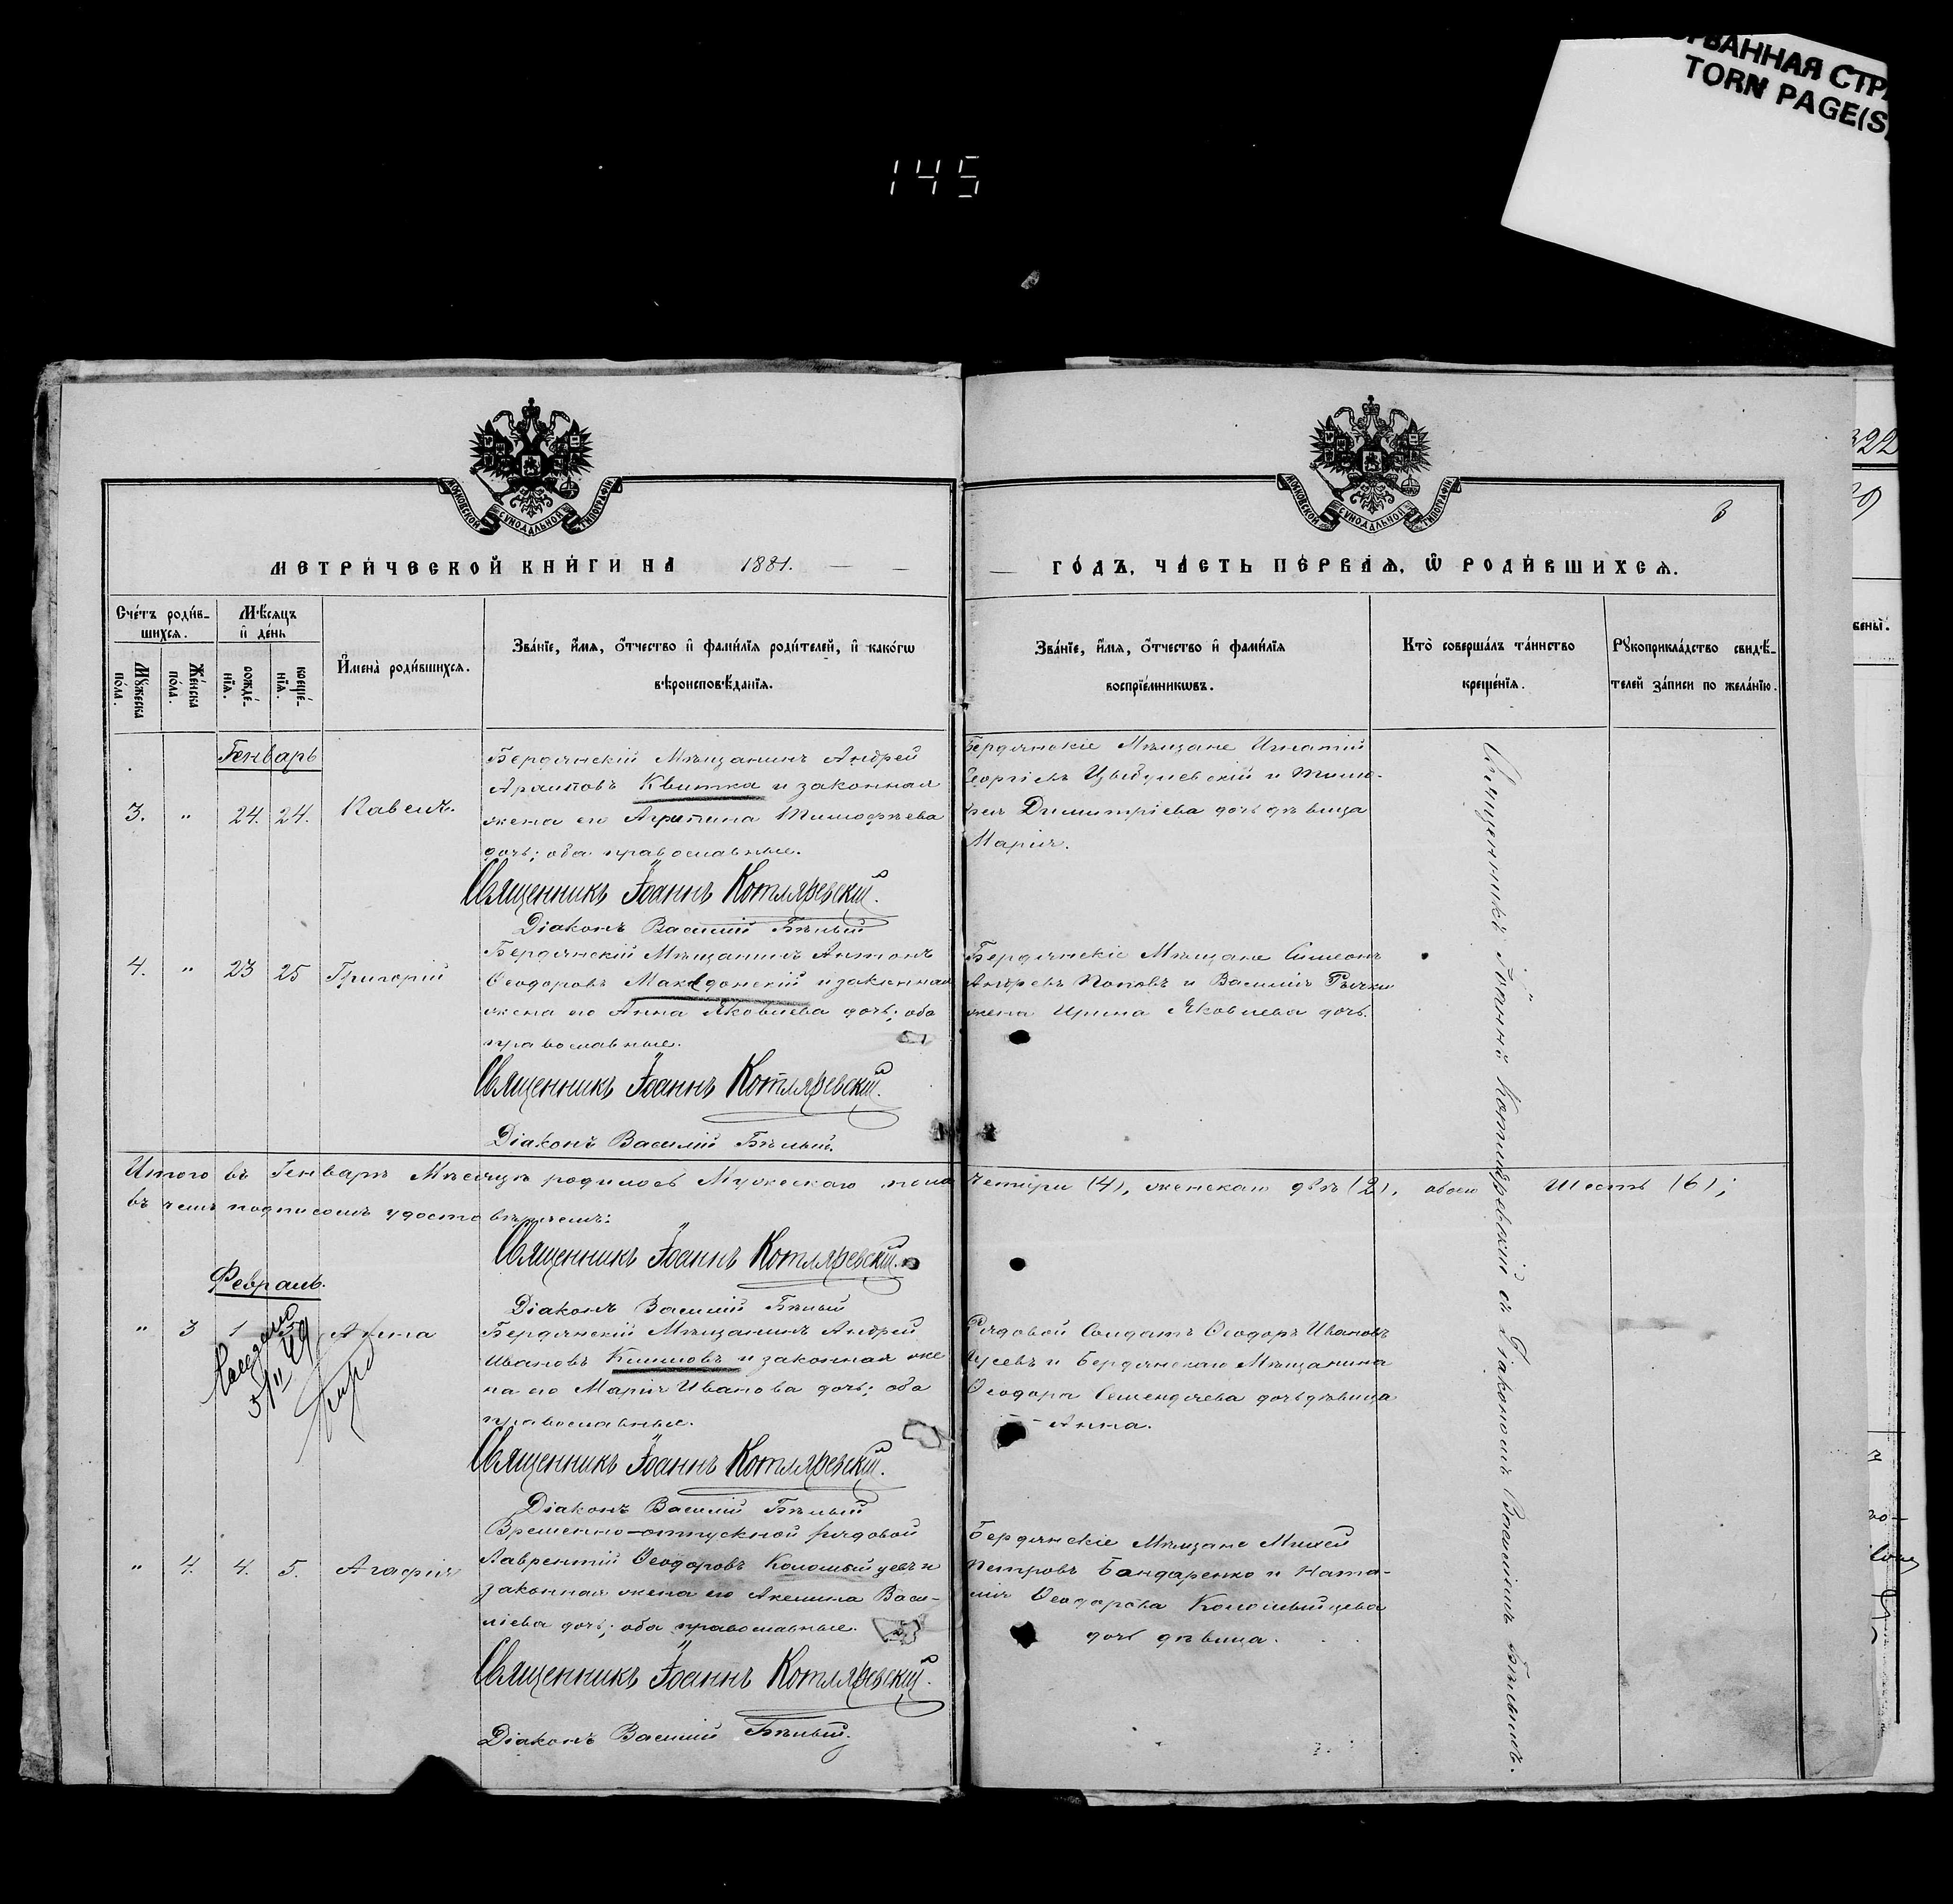 РВАННАЯ СТРА
TORN PAGE(S)
145
МОСКОВСКОЙ СѴНОДАЛЬНОЙ ТИПОГРАФІИ
МЕТРИЧЕСКОЙ КНИГИ НА 1881.
Счетъ родившихся.
Мужеска пола.
Женска пола.
Мѣсяцъ и день
рожденія.
крещенія.
Имена родившихся.
Званіе, имя, отчество и фамилія родителей, и какогѡ
вѣроисповѣданія.
Генварь
3. " 24. 24. Павелъ.
Бердянскій Мѣщанинъ Андрей
Квитка и законная
жена его Агрипина Тимофѣева
дочь; оба православные.
Священникъ Іоаннъ Котляревскій.
Діаконъ Василій Бѣлый
4. " 23 25 Григорій
Бердянскій Мѣщанинъ Антонъ
Ѳеодоровъ Македонскій и законная
жена его Анна Яковлева дочь; оба
православные.
Священникъ Іоаннъ Котляревскій.
Діаконъ Василій Бѣлый.
Итого въ Генварѣ Мѣсяцѣ родилось Мужескаго пола четыри (4), женскаго двѣ (2), обоего Шесть (6);
въ чемъ подписомъ удостовѣряемъ:
Священникъ Іоаннъ Котляревскій.
Діаконъ Василій Бѣлый
Февраль.
" 3 1 Анна
Бердянскій Мѣщанинъ Андрей
Ивановъ Климовъ и законная же
на его Марія Иванова дочь; оба
православные.
Священникъ Іоаннъ Котляревскій.
Діаконъ Василій Бѣлый
" 4. 4. 5. Агафія
Временно-отпускной рядовой
Лаврентій Ѳеодоровъ Коломыйцевъ и
законная жена его Акелина Васи-
ліева дочь; оба православные.
Священникъ Іоаннъ Котляревскій.
Діаконъ Василій Бѣлый.
МОСКОВСКОЙ СѴНОДАЛЬНОЙ ТИПОГРАФІИ
ГОДЪ, ЧАСТЬ ПЕРВАЯ, Ѿ РОДИВШИХСЯ.
Званіе, имя, отчество и фамилія
воспріемникѡвъ.
Кто совершалъ таинство
крещенія.
Рукоприкладство свидѣ-
телей записи по желанію.
Бердянскіе Мѣщане Игнатій
Димитріева дочь дѣвица
Марія.
Бердянскіе Мѣщане Симеонъ
Андреевъ Поповъ и Василія
жена Ирина Яковлева дочь.
Рядовой Солдатъ Ѳеодоръ Ивановъ
Гусевъ и Бердянскаго Мѣщанина
Ѳеодора дочь дѣвица
Анна.
Бердянскіе Мѣщане Михей
Петровъ Бандаренко и Ната-
лія Ѳеодорова Коломыйцева
дочь дѣвица.
Священникъ Іоаннъ Котляревскій съ Діакономъ Василіемъ Бѣлымъ.
322